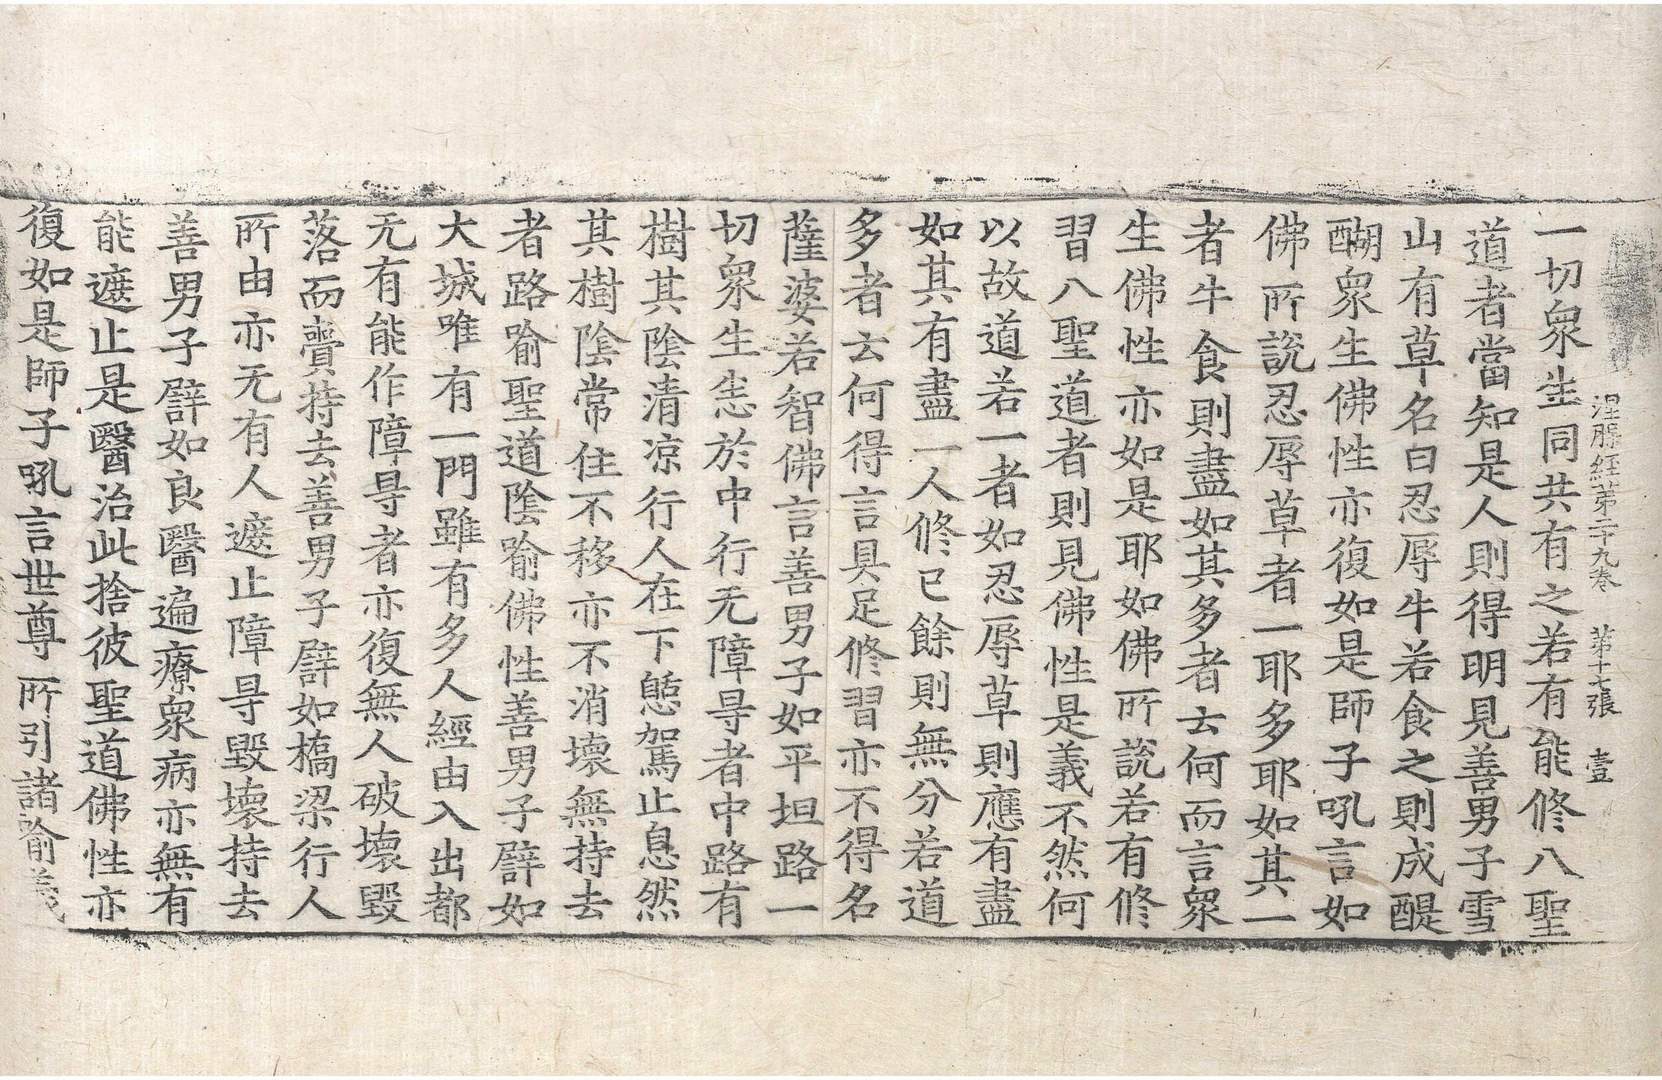 涅槃經第二十九卷　第十七張　壹
一切衆生同共有之若有能修八聖
道者當知是人則得明見善男子雪
山有草名曰忍辱牛若食之則成醍
醐衆生佛性亦復如是師子吼言如
佛所說忍辱草者一耶多耶如其一
者牛食則盡如其多者云何而言衆
生佛性亦如是耶如佛所說若有修
習八聖道者則見佛性是義不然何
以故道若一者如忍辱草則應有盡
如其有盡一人修已餘則無分若道
多者云何得言具足修習亦不得名
薩婆若智佛言善男子如平坦路一
切衆生悉於中行无障㝵者中路有
樹其陰清凉行人在下憩駕止息然
其樹陰常住不移亦不消壞無持去
者路喻聖道陰喻佛性善男子譬如
大城唯有一門雖有多人經由入出都
无有能作障㝵者亦復無人破壞毀
落而賷持去善男子譬如橋梁行人
所由亦无有人遮止障㝵毀壞持去
善男子譬如良醫遍療衆病亦無有
能遮止是醫治此捨彼聖道佛性亦
復如是師子吼言世尊所引諸喻義